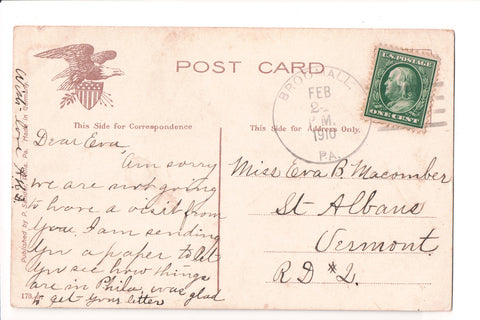 POST CARD
This Side for Correspondence
This Side for Address Only.
U.S. POSTAGE
ONE CENT
BROOMALL
FEB
2
M.
1910
PA.
Dear Eva,
Am sorry
we are not going
to have a visit from
you. I am sending
yu a paper to let
yu see how things
are in Phila, was glad
to get your letter
With love
Miss Eva B. Macomber
St Albans
Vermont.
R D #2.
Published by P. Pa. Made in Germany